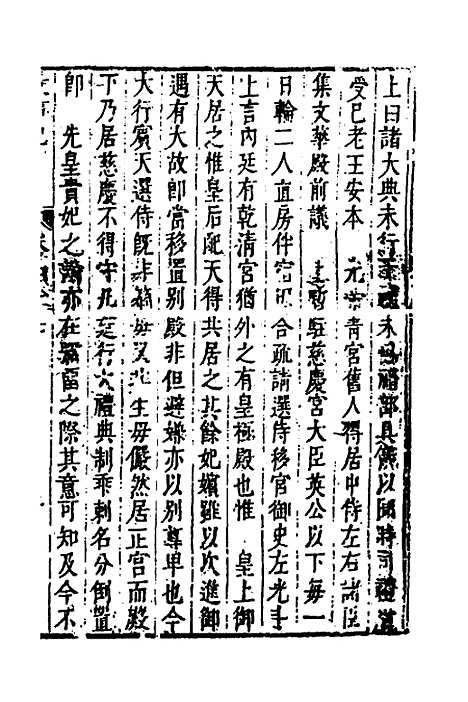 上曰諸大典未行
未舉禮部具儀以聞時司禮監
受已老王安本 元 青宮舊人得居中侍左右諸臣
集文華殿前議 暫駐慈慶宮大臣英公以下每一
日輪二人直房伴宿 合疏請選侍移宮御史左光斗
上言內廷有乾清宮猶外之有皇極殿也惟 皇上御
天居之惟皇后配天得共居之其餘妃嬪雖以次進御
遇有大故卽當移置別殿非但避嫌亦以別尊卑也今
大行賓天選侍旣非嫡母又非生母儼然居正宮而殿
下乃居慈慶不得守几筵行大禮典制乖剌名分倒置
卽 先皇貴妃之 亦在彌留之際其意可知及今不